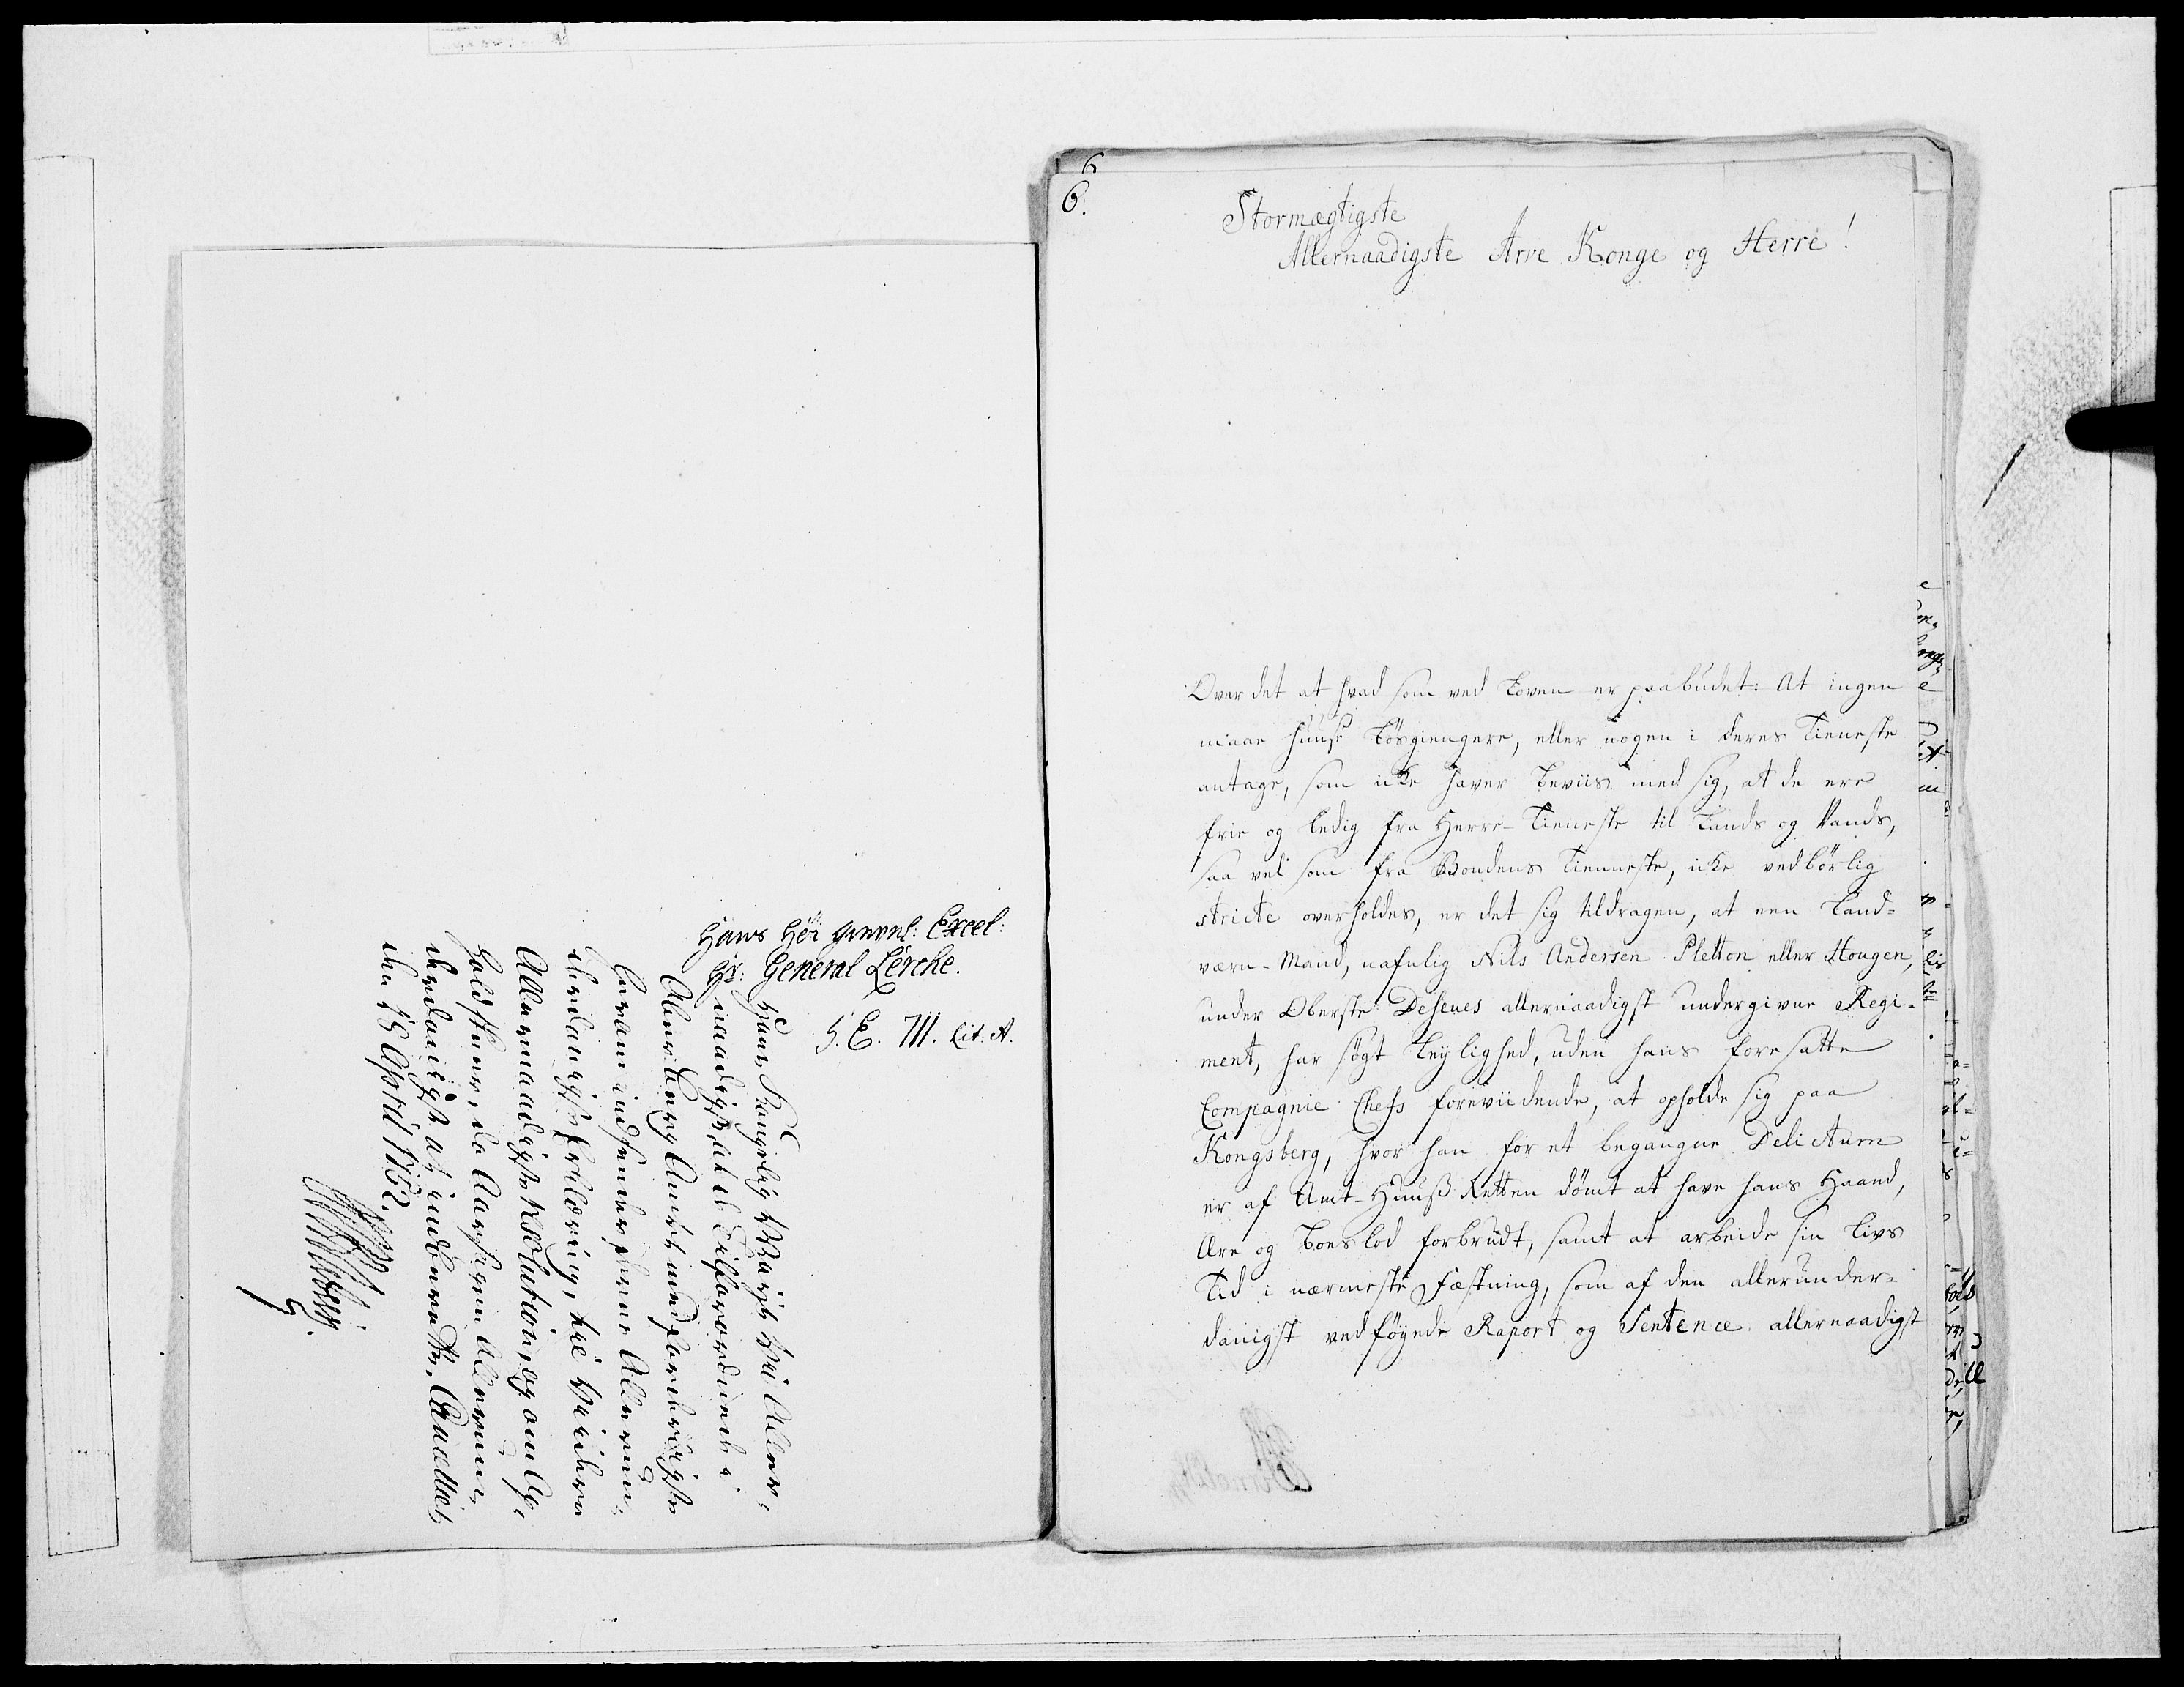 Hans Høi grevel: Excel:
Hr: General Lerche.
S. E. 711. Lit: A.
Hans Kongelig Mayts hui Aller-
naadigst at
med forderligste
indsender Allerun-
danigste Erklæring, til
Allernaadigste Resolution, og om
holdsteene, da Aarsagen Allerun-
derdanigst at indberette. Cancelliet
den 18 April 1752.
6
6.
Stormægtigste
Allernaadigste Arve Konge og Herre!
Over det at hvad som ved Loven er paabudet: At ingen
maae huuse Løsgiengere, eller nogen i deres Tieneste
antage, som icke haver beviis med sig, at de ere
frie og ledig fra Herre-Tieneste til Lands og Vands,
saa vel som fra Bondens Tienneste, icke vedbørlig
stricte overholdes, er det sig tildragen, at een Land-
værn-Mand, nafnlig Nils Andersen Pletton eller Hougen,
under Oberste Deseues allernaadigst undergivne Regi-
ment, har søgt Leylighed, uden hans foresatte
Compagnie Chefs foreviidende, at opholde sig paa
Kongsberg, hvor han for et begangne Delictum
er af Amt-Huuß Retten dømt at have hans Haand,
Ære og Boeslod forbrudt, samt at arbeide sin Livs
Tid i nærmeste Fæstning, som af den allerunder-
danigst vedføyede Raport og Sentence allernaadigst